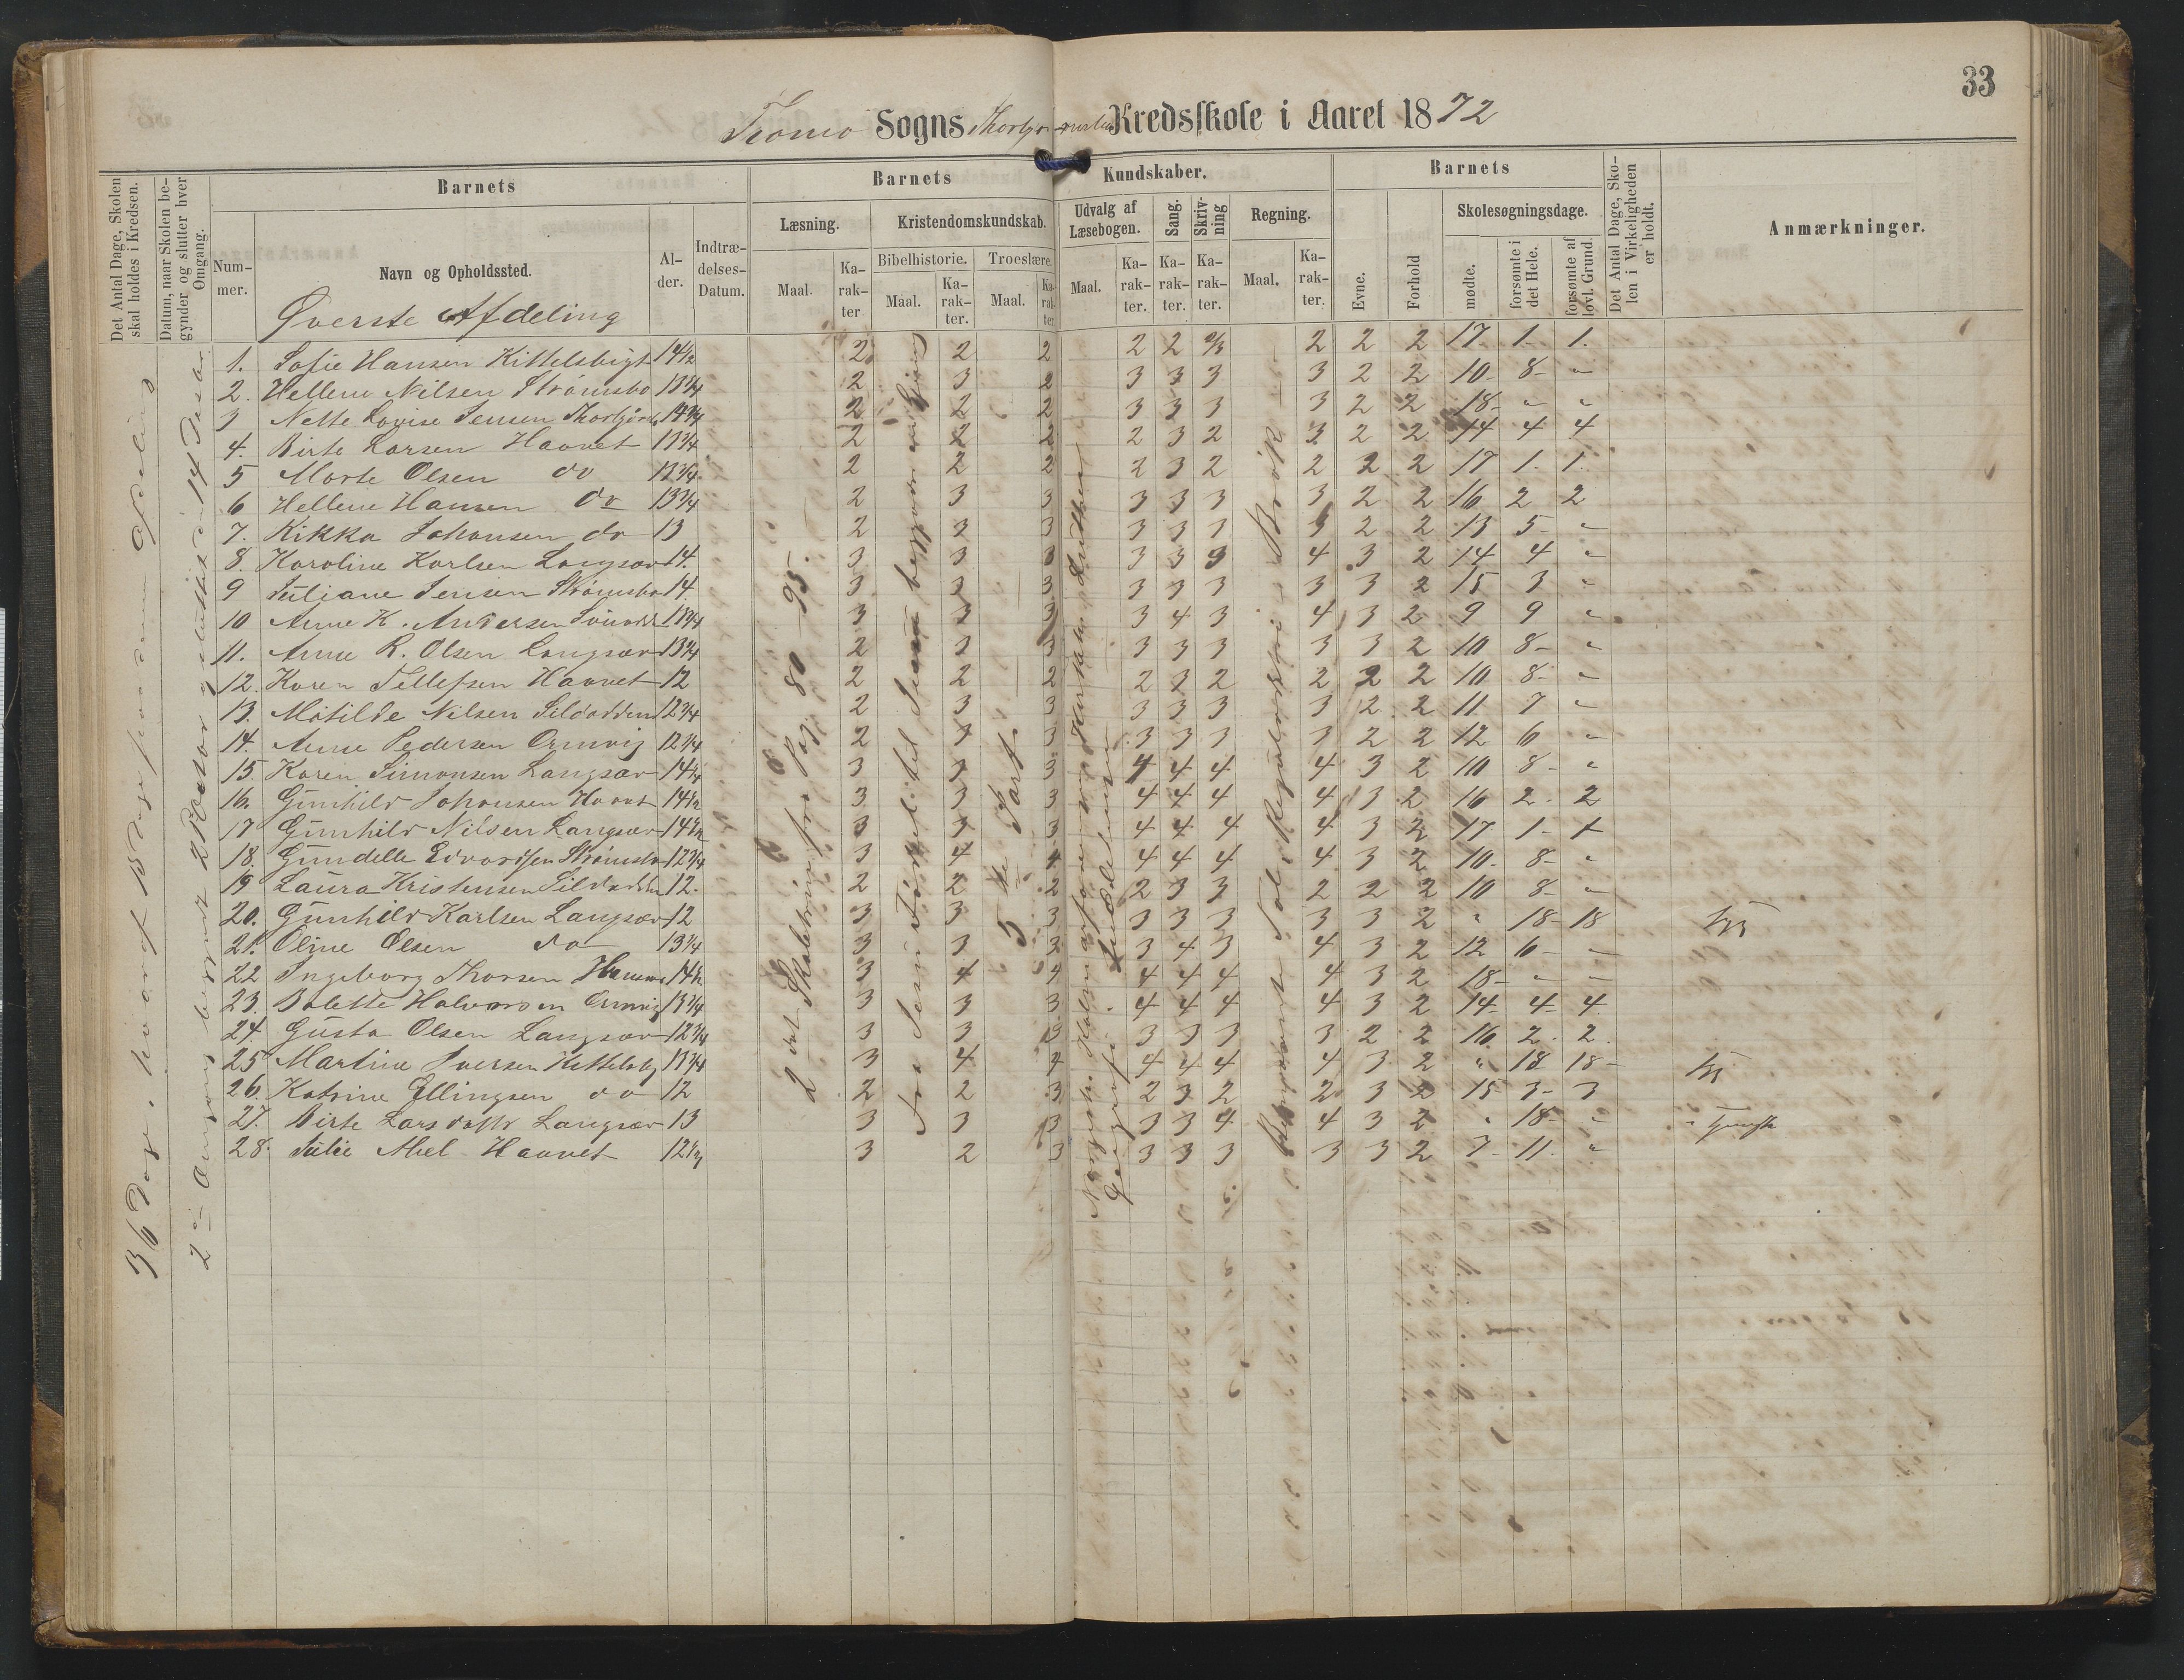 33
Tromø Sogns Kredsskole i Aaret 1872
Det Antal Dage, Skolen skal holdes i Kredsen.
Datum, naar Skolen begynder og slutter hver Omgang.
Barnets
Nummer.
Navn og Opholdssted.
Alder.
Indtrædelses-Datum.
Barnets Kundskaber.
Læsning.
Maal.
Karakter
Kristendomskundskab.
Bibelhistorie.
Maal.
Karakter.
Troeslære.
Maal.
Karakter
Udvalg af Læsebogen.
Maal.
Karakter.
Sang.
Karakter.
Skrivning
Karakter.
Regning.
Maal.
Karakter.
Barnets
Evne.
Forhold
Skolesøgningsdage.
mødte.
forsømte i det Hele.
forsømte af lovl. Grund.
Det Antal Dage, Skolen i Virkeligheden er holdt.
Anmærkninger.
Øverste Afdeling
36 Dage, hvoraf 18 Dage paa denne Afdeling
2den Omgang begyndt 2 Oktbr og sluttet d. 14 Desbr.
2det Skoletrin fra Pag. 80-95.
5te Part.
1. Sofie Hansen Kittelsbugt 14½ 2 2 2 2 2 2/3 2 2 2 17 1 1.
2. Hellene Nilsen Strømsbo 13¾ 2 3 2 3 3 3 3 2 2 10 8 "
3 Nette Lovise Jensen 14¾ 2 2 2 3 3 3 3 2 2 18 " "
4. Birte Larsen Havnet 13¾ 2 2 2 2 3 2 3 2 2 14 4 4
5 Marte Olsen do 13¾ 2 2 2 2 3 2 2 2 2 17 1 1.
6 Hellene Hansen do 13¾ 2 3 3 3 3 3 3 2 2 16 2 2
7. Kikka Johansen do 13 2 3 3 3 3 3 3 2 2 13 5 "
8. Karoline Karlsen Langsæv 14. 3 3 3 3 3 3 4 3 2 14 4 "
9 Juliane Jensen Strømsbo 14 3 3 3 3 3 3 3 3 2 15 3 "
10 Anne K. Andersen 13¾ 3 3 3 3 4 3 4 3 2 9 9 "
11. Anne R. Olsen Langsæv 13¾ 2 3 3 3 3 3 3 3 2 10 8 "
12. Karen Tellefsen Havnet 12 2 2 2 2 3 2 2 2 2 10 8 "
13. Matilde Nilsen Sildodden 12¾ 2 3 3 3 3 3 3 2 2 11 7 "
14. Anne Pedersen Ormvig 12¾ 2 3 3 3 3 3 3 2 2 12 6 "
15. Karen Simonsen Langsæv 14¼ 3 3 3 4 4 4 4 3 2 10 8 "
16. Gunhild Johansen Havnet 14½ 3 3 3 4 4 4 4 3 2 16 2 2
17 Gunhild Nilsen Langsæv 14½ 3 3 3 4 4 4 4 3 2 17 1 1
18. Gundelle Edvardsen Strømsbo 12¾ 3 4 4 4 4 4 4 3 2 10 8 "
19 Laura Kristensen Sildodden 12. 2 2 2 2 3 3 2 2 2 10 8 "
20. Gunhild Karlsen Langsæv 12 3 3 3 3 3 3 3 3 2 " 18 18 syg
21. Oline Olsen do 13¼ 3 3 3 3 4 3 4 3 2 12 6 "
22 Ingeborg Thorsen 14½ 3 4 4 4 4 4 4 3 2 18 " "
23. Bolette Halvorsen Ormvig 13¾ 3 3 3 4 4 4 4 3 2 14 4 4
24. Gusta Olsen Langsæv 12¾ 3 3 3 3 3 3 3 2 2 16 2 2
25 Martine Iversen Kittelsbg 3 4 4 4 4 4 4 3 2 " 18 18 syg
26. Katrine Ellingsen do 12 2 2 3 2 3 2 2 3 2 15 3 3
27. Birte Larsdatter Langsæv 13 3 3 3 3 3 4 4 3 2 " 18 "
28. Julie Havnet 12½ 3 2 3 3 3 3 3 3 2 7 11 "